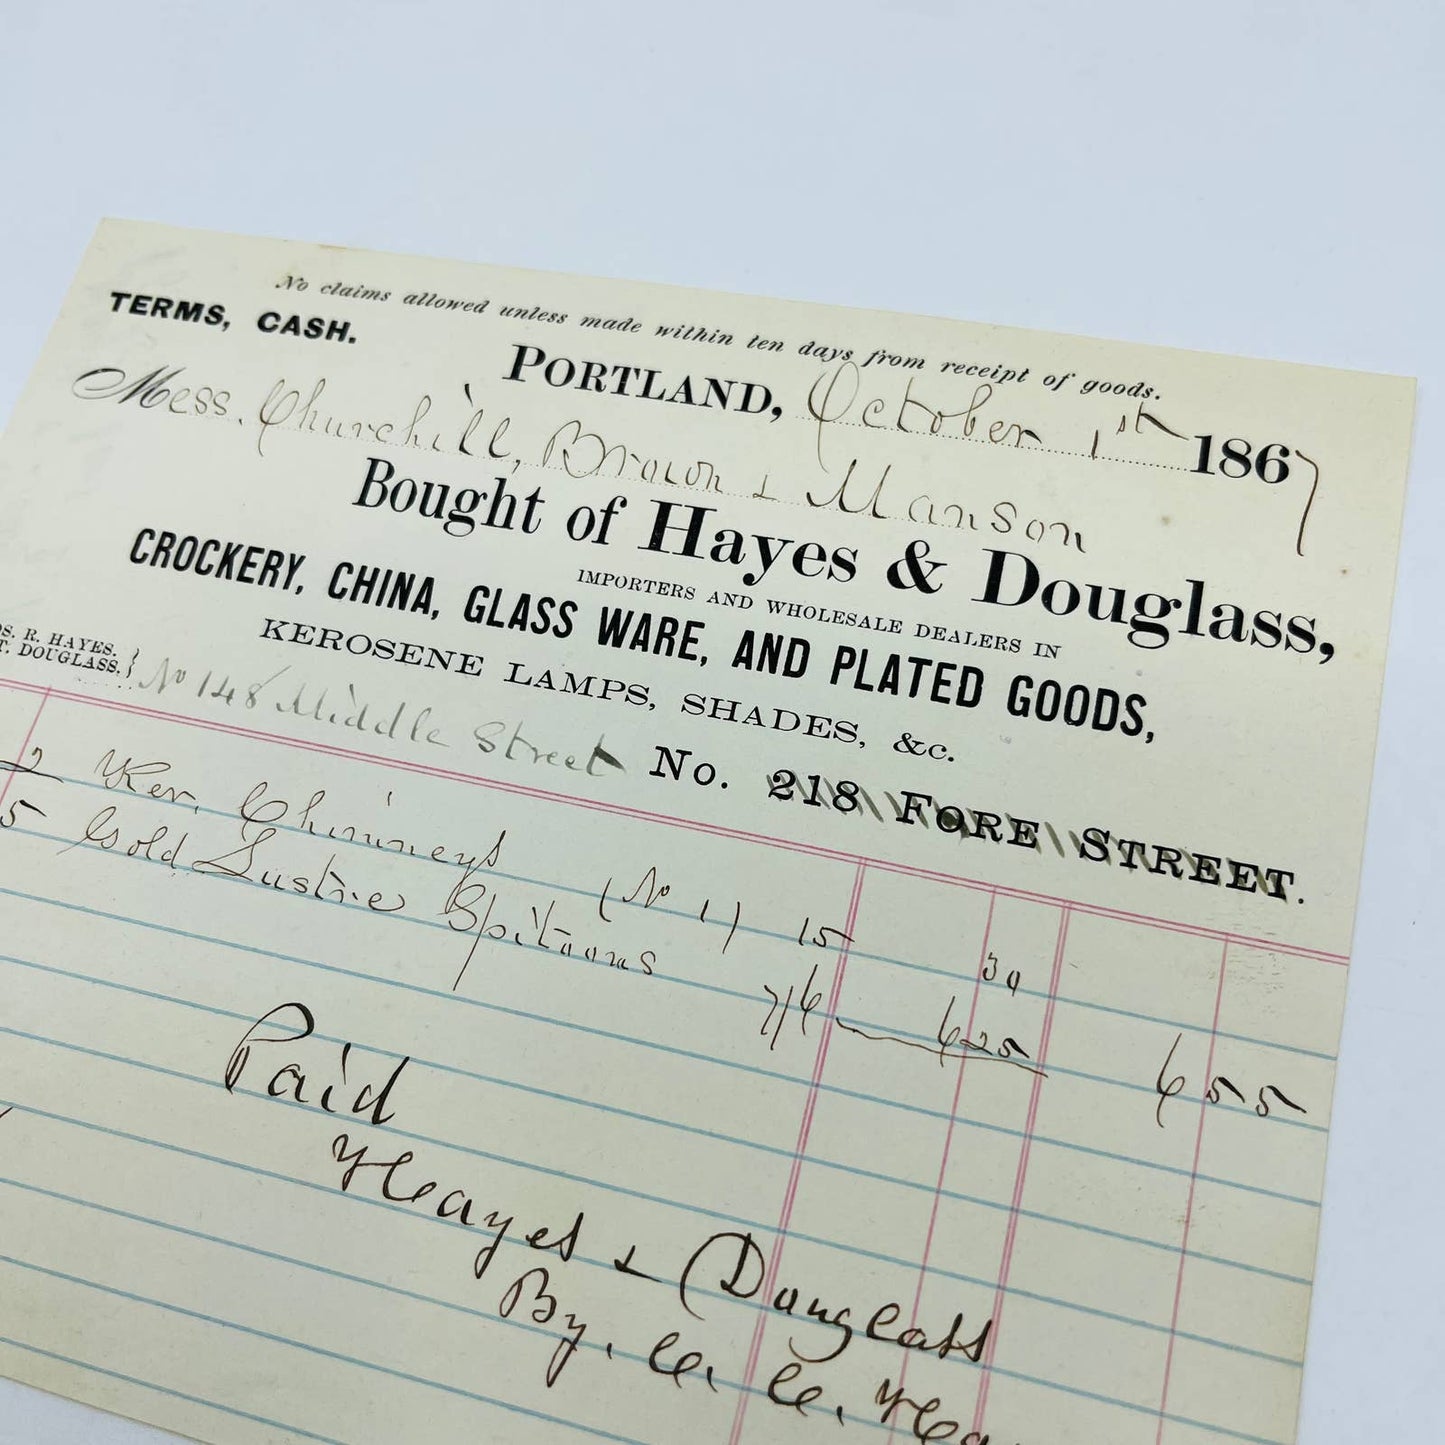 No claims allowed unless made within ten days from receipt of goods.
TERMS, CASH.
PORTLAND, October 1st 1867
Mess. Churchill, Brown & Manson
Bought of Hayes & Douglass,
IMPORTERS AND WHOLESALE DEALERS IN
CROCKERY, CHINA, GLASS WARE, AND PLATED GOODS,
KEROSENE LAMPS, SHADES, &c.
S. R. HAYES.
T. DOUGLASS.
No 148 Middle Street No. 218 FORE STREET.
2 Ker. Chimneys (No 1) 15 30
5 Gold Lustre Spitoons 7/6 6 25 6 55
Paid
Hayes & Douglass
By.